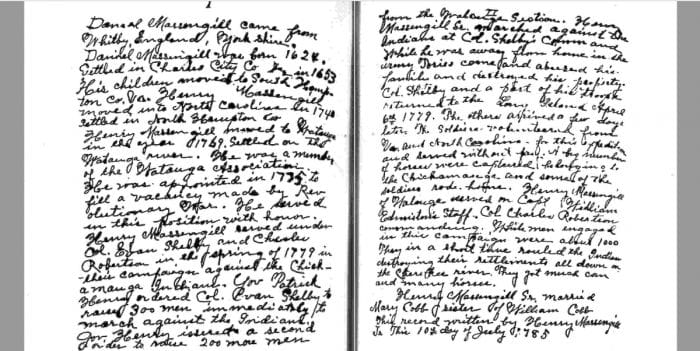 1
Daniel Massengill came from
Whitby, England, York shire.
Daniel Massengill was born 1624.
Settled in Charles City Co Va in 1653
His children moved to South Hamp-
ton Co. Va. Henry Massengill
moved into North Carolina in 1740
settled in North Hampton Co
Henry Massengill moved to Watauga
in the year 1769. Settled on the
Watauga river. He was a member
of the Watauga Association.
He was appointed in 1775 to
fill a vacancy made by Rev
olutionary War. He served
in this position with honor.
Henry Massengill served under
Col. Evan Shelby and Charles
Robertson in the spring of 1779 in
their campaign against the Chick-
amauga Indians. Gov Patrick
Henry ordered Col. Evan Shelby to
raise 300 men immediately to
march against the Indians.
Gov. Henry issued a second
order to raise 200 more men
from the Section. Henry
Massengill Sr. marched against the
Indians at Col. Shelby Command
While he was away from home in the
army Tories come and abused his
family and destroyed his property.
Col. Shelby and a part of his troops
returned to the Long Island April
1779. The others arrived a few days
later. The Soldiers volunteered from
Va. and North Carolina. for this
and served without pay. A number
of horses were captured belonging to
the Chickamauga and some of the
soldiers rode home. Henry Massengill
of Watauga served on Capt William
Edmistons Staff. Col Charles Robertson
commanding. While men engaged
in this campaign were about 1000
They in a short time routed the Indians
destroying their settlements all down on
the Cherokee river. They got much corn
and many horses.
Henry Massengill Sr. married
Mary Cobb sister of William Cobb
This record written by Henry Massengill
In This 10th day of July 1785